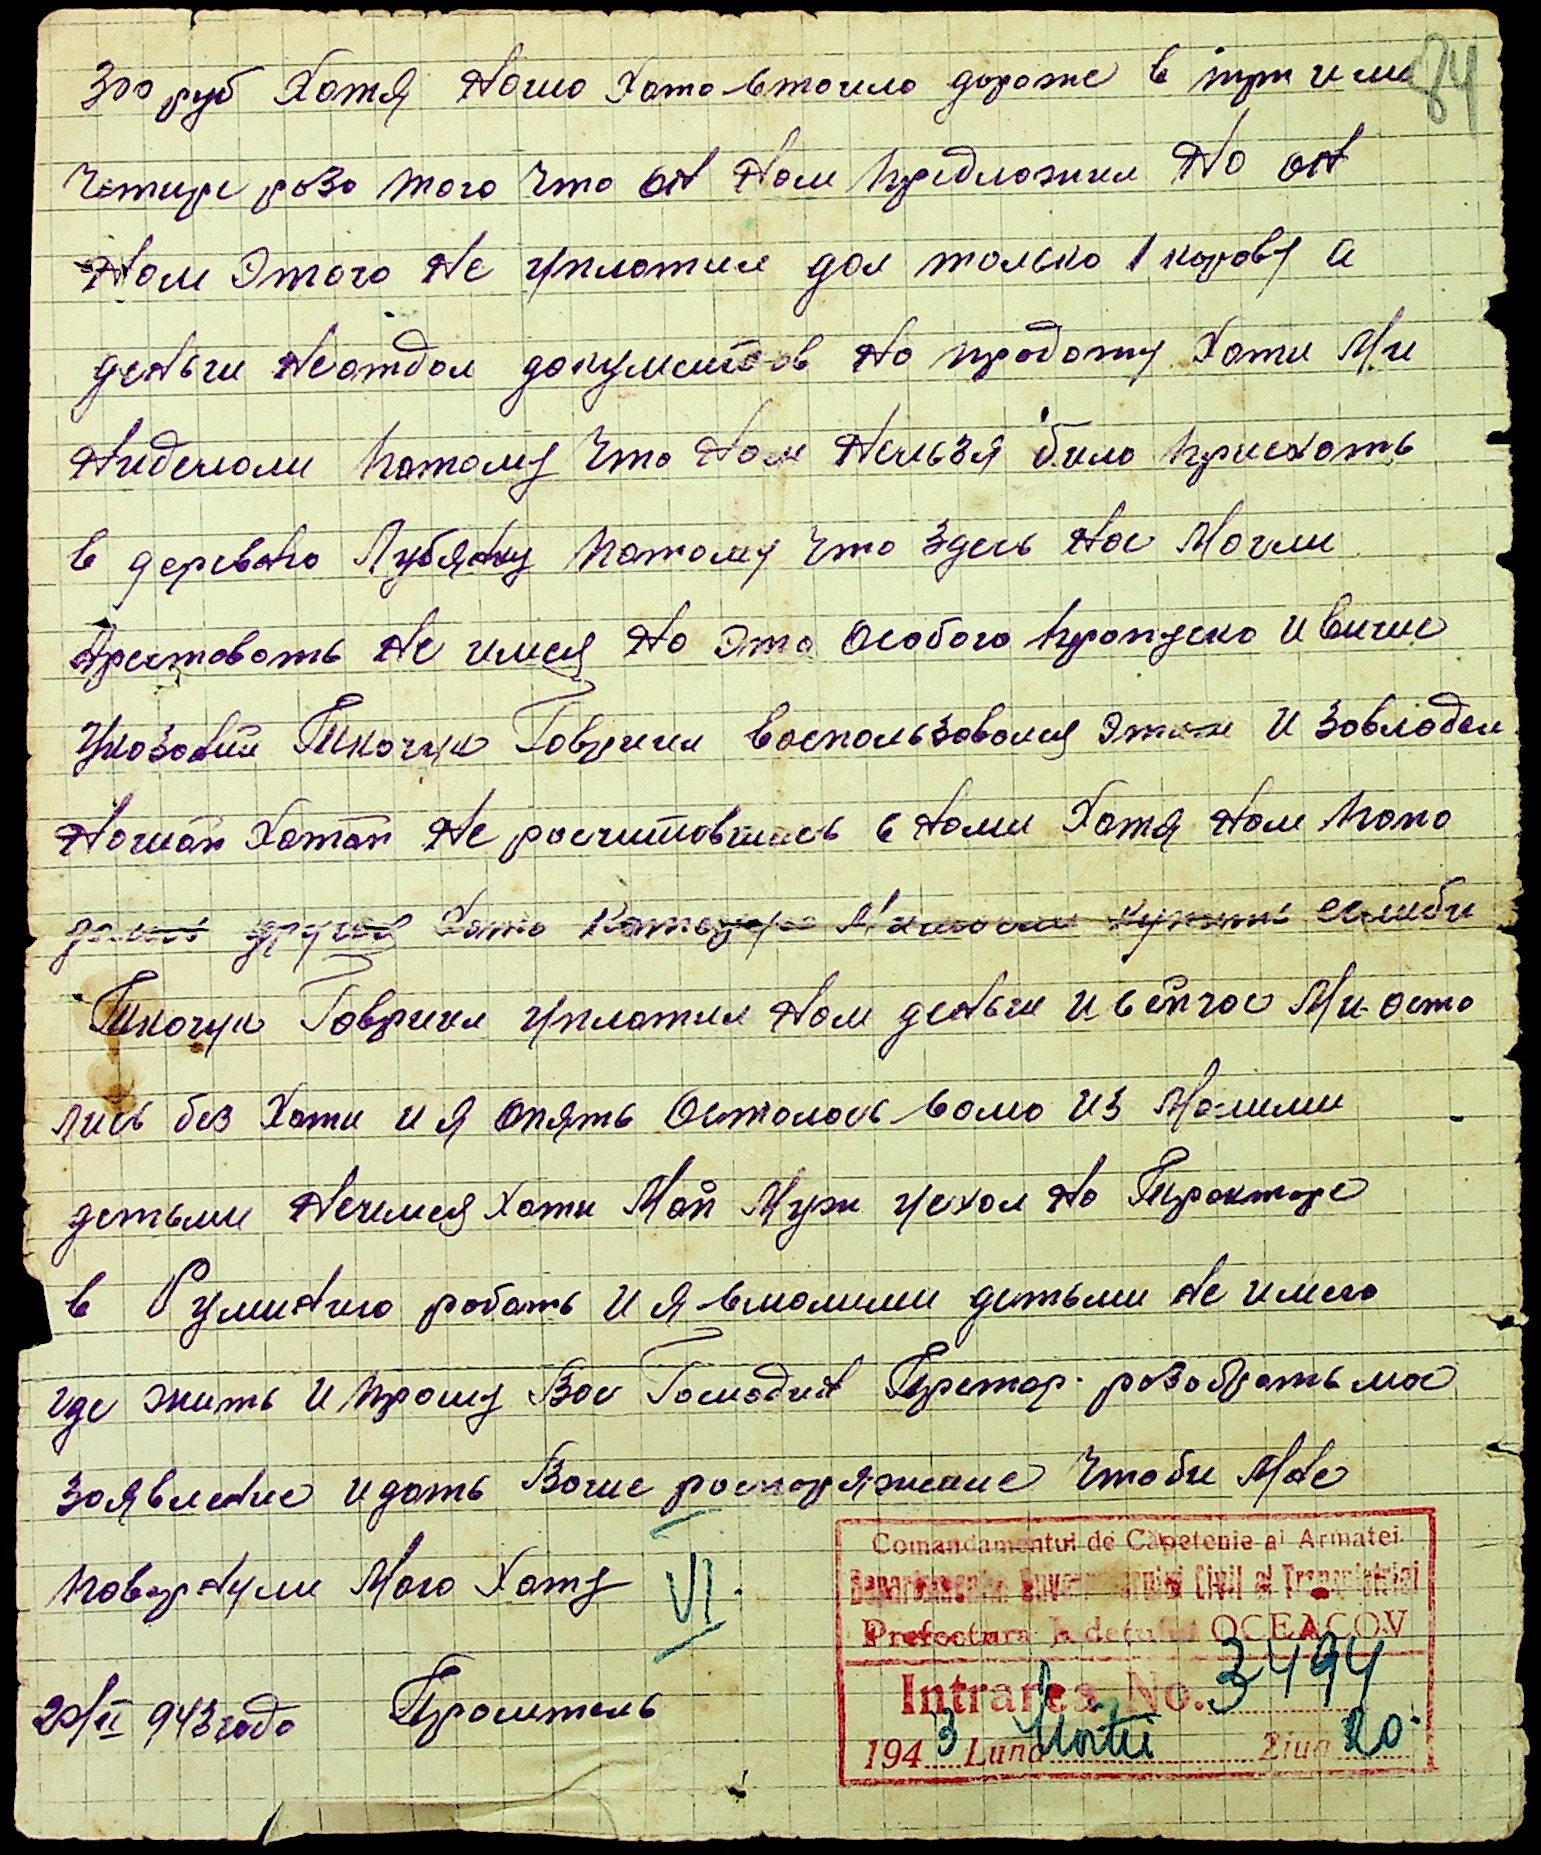 84
300 руб Хотя Наша Хата стоила дороже в три или
Четире раза того Что он Нам Предложил Но он
Нам Этого Не уплатил дал только 1 корову а
деньги Неотдал документов На продажу Хати Ми
Ниделали Потому Что Нам Нельзя било Приехать
в деревню Лубянку Потому Что Здесь Нас Могли
Арестовать Не имея На Это Особого Пропуска и више
Указаний Ткачук Гавриил Воспользовался Этим и Завладел
Нашой Хатой Не расчитовшись с Нами Хотя Нам Попа
далась другая Хата Которую Ми могли купить еслиби
Ткачук Гавриил уплатил Нам деньги и сейчас Ми оста
лись без Хати и я Опять Осталась сама из Малими
детьми Неимея Хати Мой Муж уехал На Тракторе
в Руминию работь и я смалими детьми Не имею
где жить и Прошу Вас Господин Претор разобрать мое
Заявление и дать Ваше распоряжение Чтоби Мне
Повернули Мою Хату
VI.
20/II 943 года Проситель
Comandamentul de Căpetenie al Armatei
Departamentul Guvernământului Civil al Transnistriei
Prefectura Județului OCEACOV
Intrarea No. 3494
1943 Luna Martie Ziua 20.